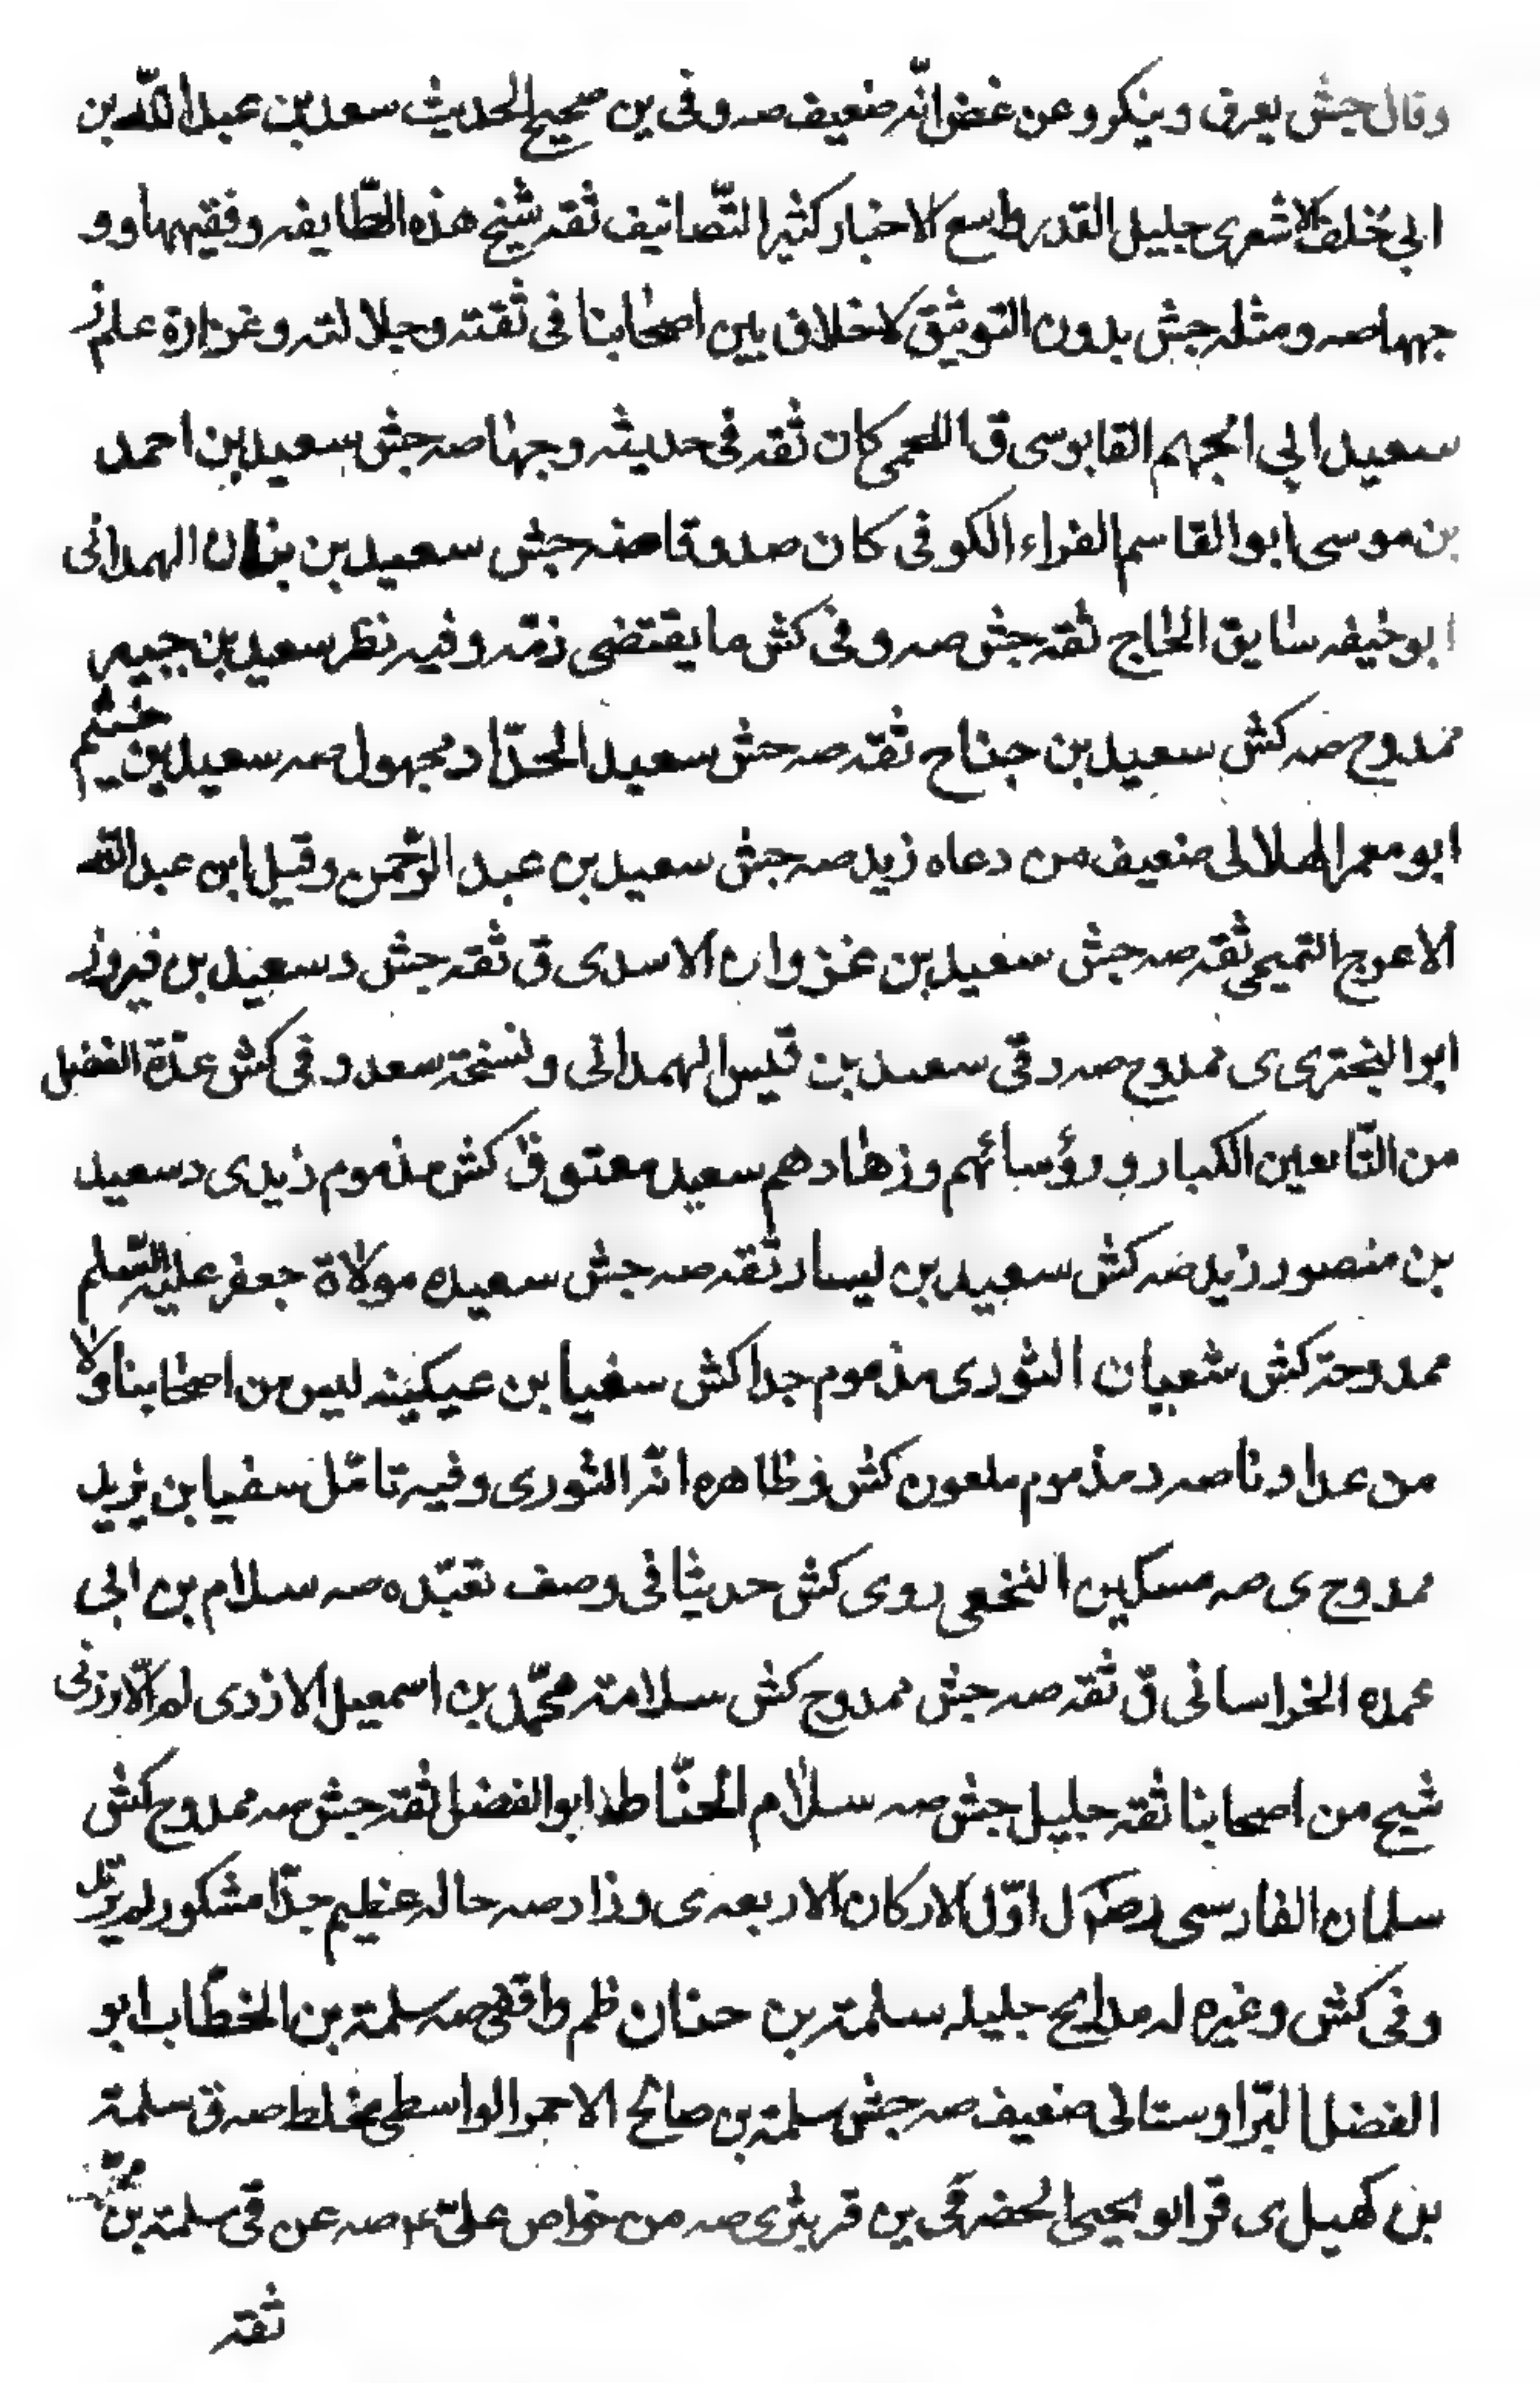 وقال جش يعرف وينكر وعن غض انّه ضعيف صه وفى ين صحيح الحديث سعد بن عبد اللّه بن
ابى خلف الاشعرى جليل القدر واسع الاخبار كثير التّصانيف ثقه شيخ هذه الطّايفه وفقيهها وو
جهها صه ومثله جش بدون التوثيق لا خلاف بين اصحابنا فى ثقته وجلالته وغزارة علمه
سعيد ابى الجهم القابوسى ق اللخمى كان ثقه فى حديثه وجها صه جش سعيد بن احمد
بن موسى ابو القاسم الفراء الكوفى كان صدوقا صه جش سعيد بن بنان الهمدانى
ابو حنيفه سايق الحاج ثقه جش صه وفى كش ما يقتضى ذمّه وفيه نظر سعيد بن جبير
ممدوح صه كش سعيد بن جناح ثقه صه جش سعيد الحدّاد مجهول صه سعيد بن خثيم
ابو معمر الهلالى ضعيف من دعاه زيد صه جش سعيد بن عبد الرّحمن وقيل ابن عبد اللّه
الاعرج التميمى ثقه صه جش سعيد بن غزوان الاسدى ق ثقه جش د سعيد بن فيروز
ابو البخترى ى ممدوح صه د قى سعيد بن قيس الهمدانى ونسخة سعد و فى كش عدّة الفضل
من التّابعين الكبار ورؤسائهم وزهادهم سعيد معتوق كش مذموم زيدى د سعيد
بن منصور زيد صه كش سعيد بن يسار ثقه صه جش سعيده مولاة جعفر عليه السّلم
ممدوحة كش شعبان الثورى مذموم جدا كش سفيا بن عيينه ليس من اصحابنا ولا
من عدادنا صه د مذموم ملعون كش وظاهره انّه الثورى وفيه تامّل سفيا بن يزيد
ممدوح ى صه مسكين النخعى روى كش حديثا فى وصف تعبّده صه سلام بن ابى
عمره الخراسانى ق ثقه صه جش ممدوح كش سلامة محمّد بن اسمعيل الازدى لم الارزنى
شيخ من اصحابنا ثقه جليل جش صه سلّام الحنّاط ابو الفضل ثقه جش صه ممدوح كش
سلمان الفارسى رضه ل اوّل الاركان الاربعه ى وزاد صه حاله عظيم جدّا مشكور لم يرتدّ
وفى كش وغيره له مدايح جليله سلمة بن حنان ظم واقفى صه سلمة بن الخطّاب ابو
الفضل البّراوستانى ضعيف صه جش سلمة بن صالح الاحمر الواسطى مخلط صه ق سلمة
بن كهيل ى قر ابو يحيى الحضرمى ين قر بترى صه من خواص علىّ ع صه عن قى سلمة بن محمّد
ثقه